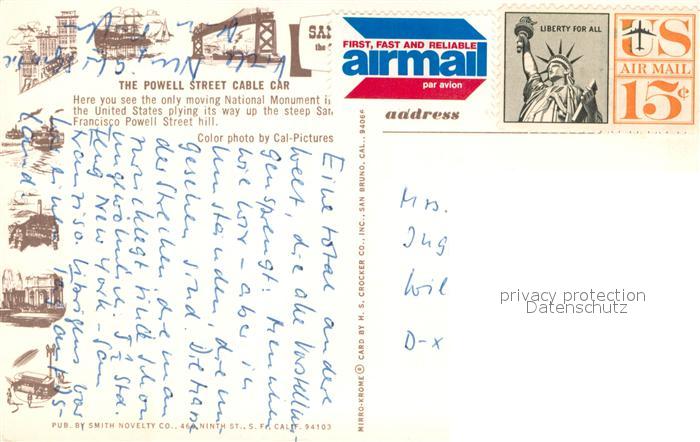 SAN
the
FIRST, FAST AND RELIABLE
airmail
par avion
LIBERTY FOR ALL
US
AIR MAIL
15¢
THE POWELL STREET CABLE CAR
Here you see the only moving National Monument in
the United States plying its way up the steep San
Francisco Powell Street hill.
Color photo by Cal-Pictures
address
Eine total andere
Welt, die alle Vorstellun-
gen sprengt! Menschen
wie wir - aber in
Umständen, die
gesehen sind. Die
der Strecken, die man
zurücklegt sind schon
ungewöhnlich. 5½ Std.
Flug New York - San
Franzisco. Übrigens
eine
Land!
MIRRO-KROME® CARD BY H. S. CROCKER CO., INC., SAN BRUNO, CAL. 94066
Mrs.
Ing
Wil
D-x
privacy protection
Datenschutz
PUB. BY SMITH NOVELTY CO., 460 NINTH ST., S. F., CALIF. 94103